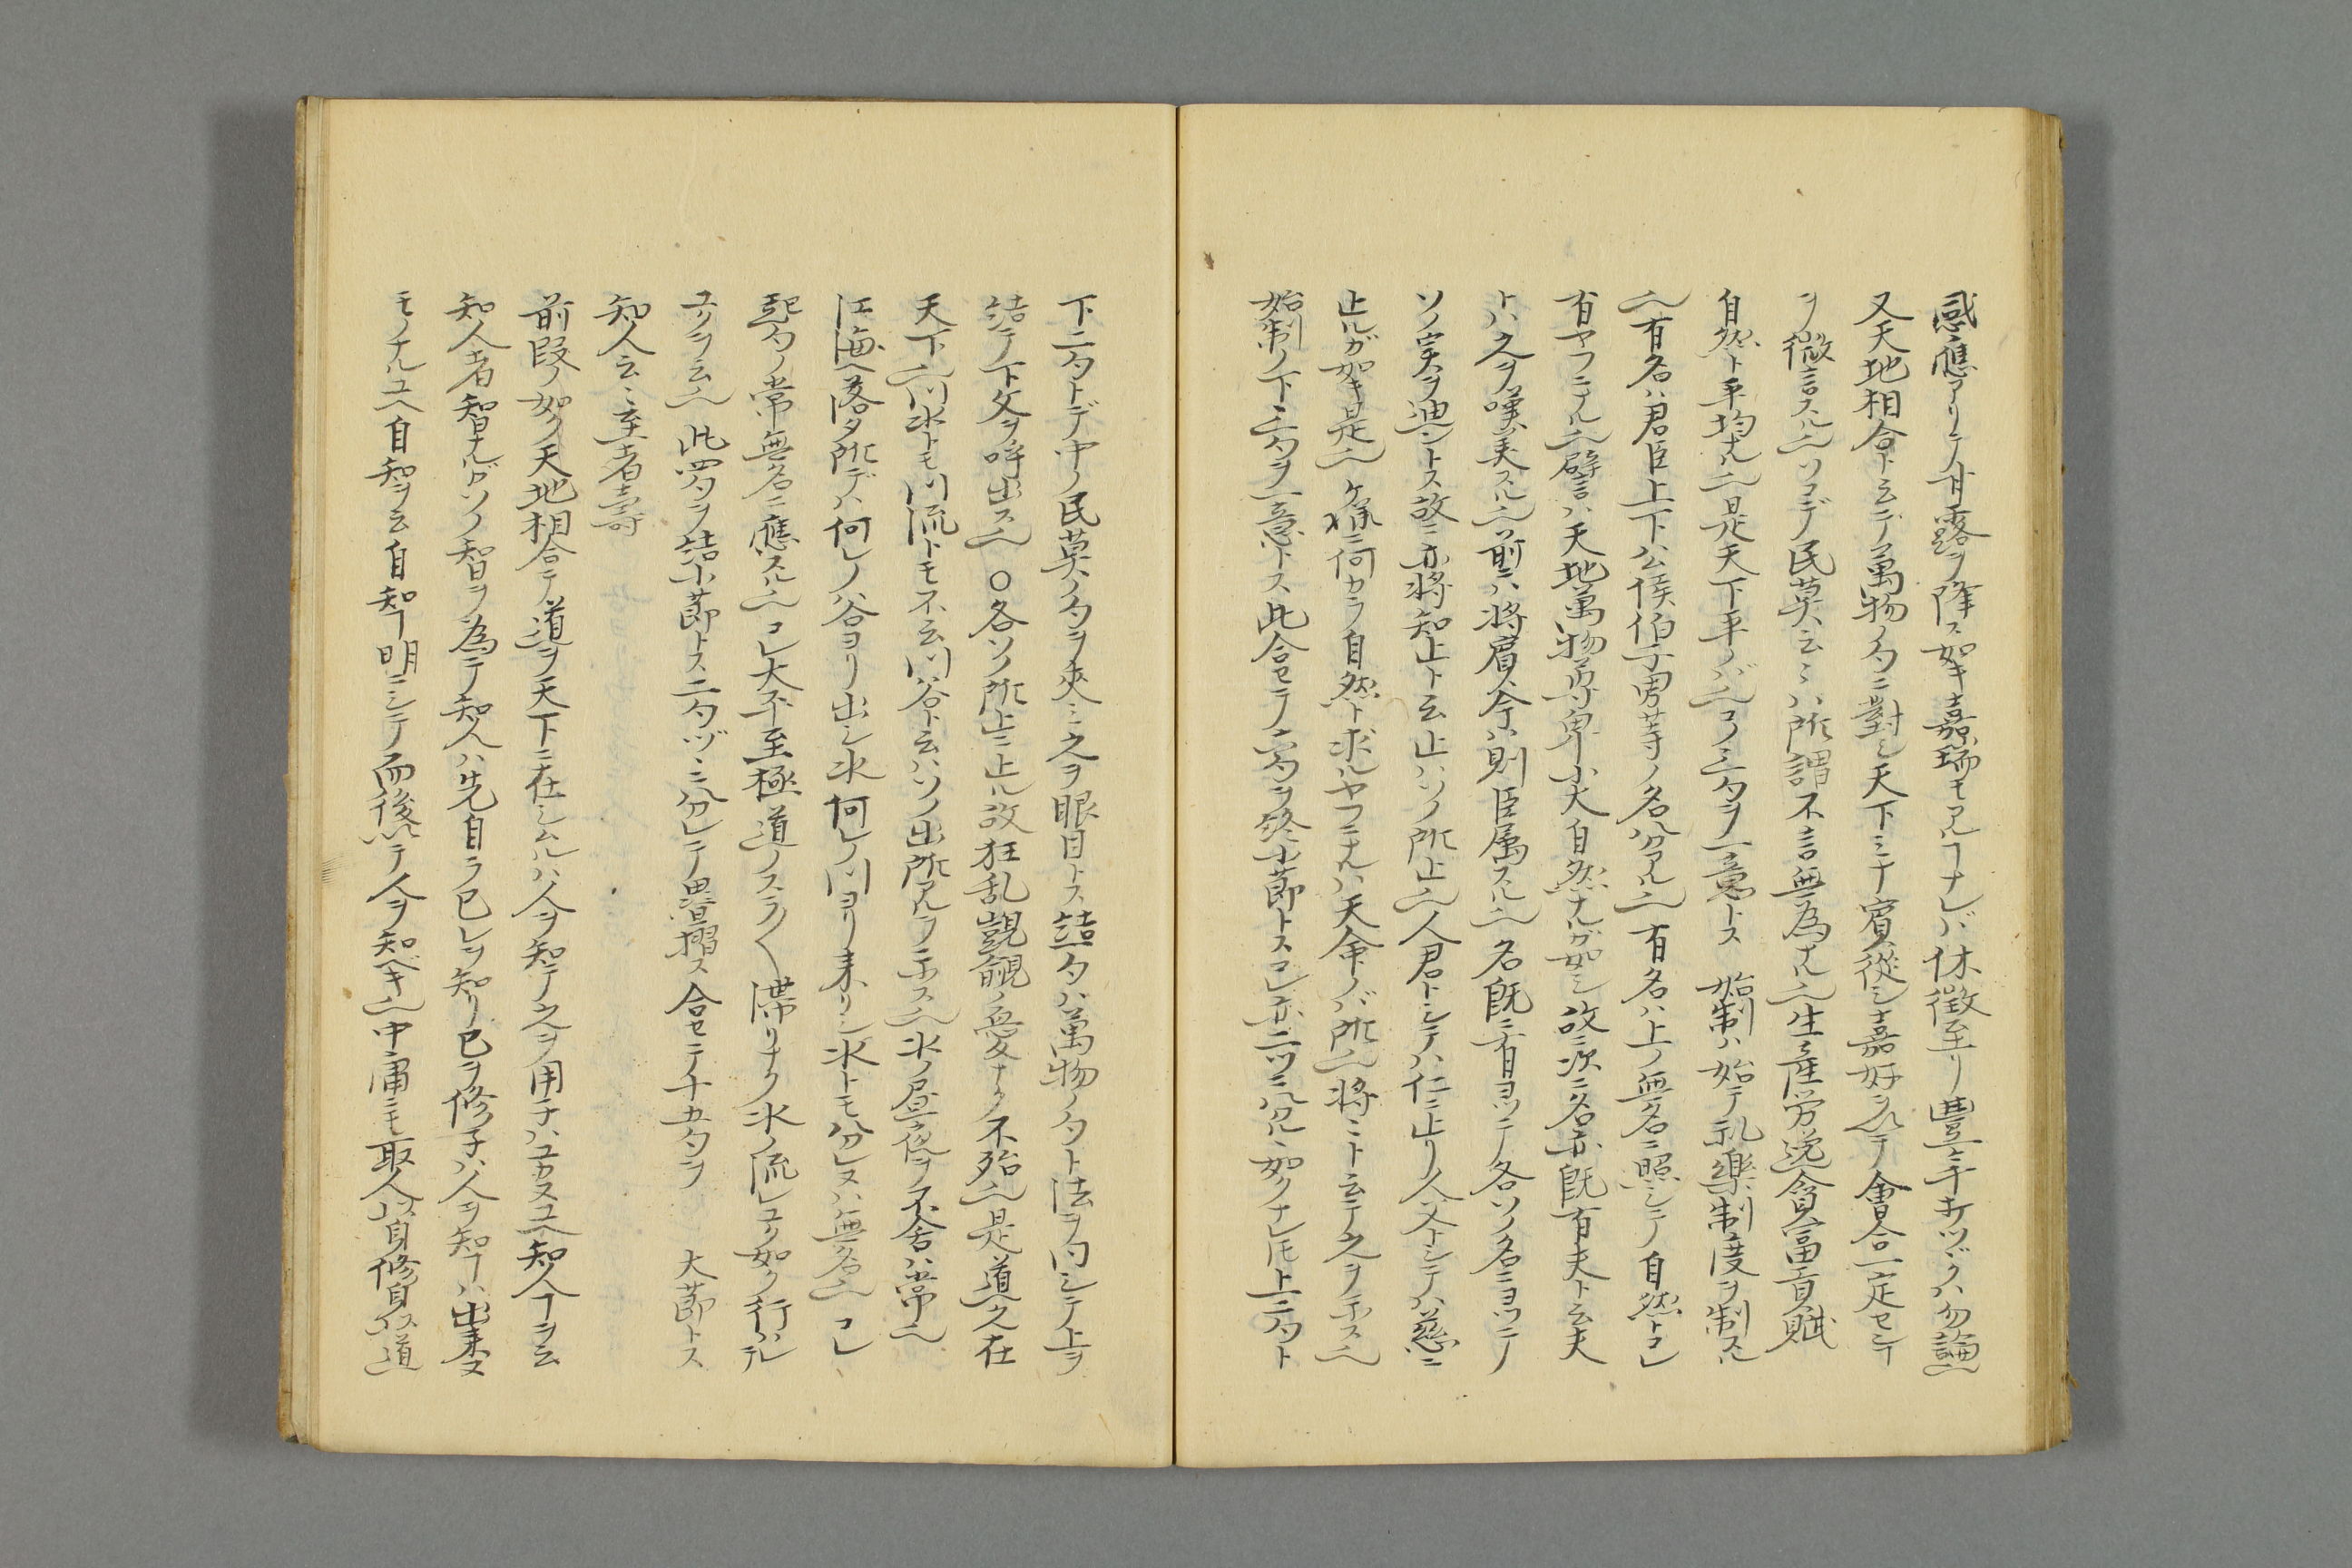 感應アリテ甘露ヲ降ス如キ嘉瑞モアルヿナレバ休徴至リ豊年ウツヾクハ勿論也
又天地相合ト云テ萬物ノ句ニ對シ天下ミナ賓從シ嘉好シテ會合一定セシ
ヲ微言スル也ソコデ民莫云々ハ所謂不言無為ナル也生産労逸貧富貢賦
自然ト平均ナル也是天下平ノバ也コノ三句ヲ一意トス 始制ハ始テ礼樂制度ヲ制スル
也有名ハ君臣上下公侯伯子男等ノ名分アル也有名ハ上ノ無名ニ照シテ自然トコレ
有ヤフニナル也譬ハ天地萬物尊卑小大自然ナルガ如シ故ニ次ニ名亦既有夫ト云夫
トハ之ヲ嘆美スル也前ニハ將賓今ハ則臣属スル也名既ニ有ヨツテ各ソノ名ニヨツテ
ソノ実ヲ迪ントス故ニ亦將知止ト云止ハソノ所止也人君トシテハ仁ニ止リ人父トシテハ慈ニ
止ルガ如キ是也 條ニ何カラ自然ト求ルヤフニナルハ天命ノバ所也將ニト云テ之ヲ示ス也
始制ノ下三句ヲ一意トス此合セテ六句ヲ終小節トスコレ亦二ツニ分ル如クナレ𪜈上二句ト
下二句トデ中ノ民莫ノ句ヲ夾ミ之ヲ眼目トス結句ハ萬物ノ句ト法ヲ同シテ上ヲ
結テ下文ヲ呼出ス也 〇各ソノ所止ニ止ル故狂乱覬覦ノ憂ナク不殆也是道之在
天下也川水トモ川流トモ不云川谷ト云ハソノ出所アルヲ示ス也水ノ昼夜ヲ不舍ハ常也
江海ヘ落タ所デハ何レノ谷ヨリ出シ水何レノ川ヨリ来リシ水トモ分レヌハ無名也コレ
起句ノ常無名ニ應スル也コレ大平至極道ノスラ〱滞リナク水ノ流レユク如ク行ハレ
ユクヲ云也 此四句ヲ結小節トス二句ヅヽニ分レテ畳摺ス合セテ十五句ヲ 大節トス
知人云々至者壽
前段ノ如ク天地相合テ道ヲ天下ニ在シムルハ人ヲ知テ之ヲ用子ハユカヌユヘ知人ヿヲ云
知人者智ナルガソノ智ヲ為テ知人ハ先自ラ己レヲ知リ己ヲ修子ハ人ヲ知ヿハ出来ヌ
モノナルユヘ自知ヲ云自知ヿ明ニシテ而後ニテ人ヲ知ベキ也中庸ニモ取人以身修身以道